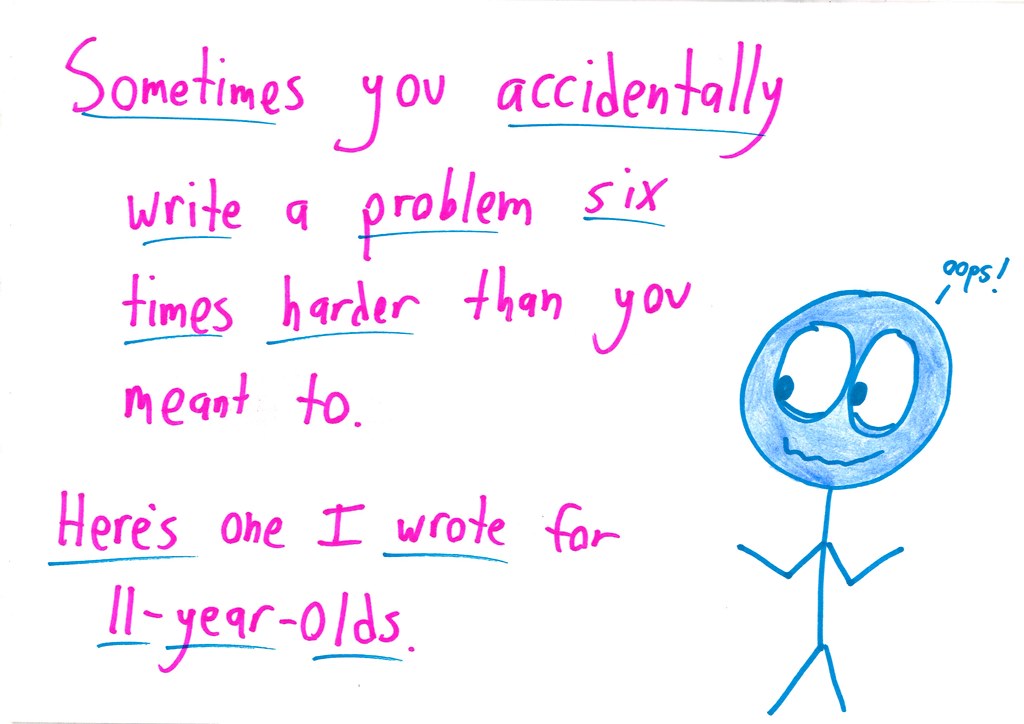 Sometimes you accidentally
write a problem six
times harder than you
meant to.
oops!
Here's one I wrote for
11-year-olds.